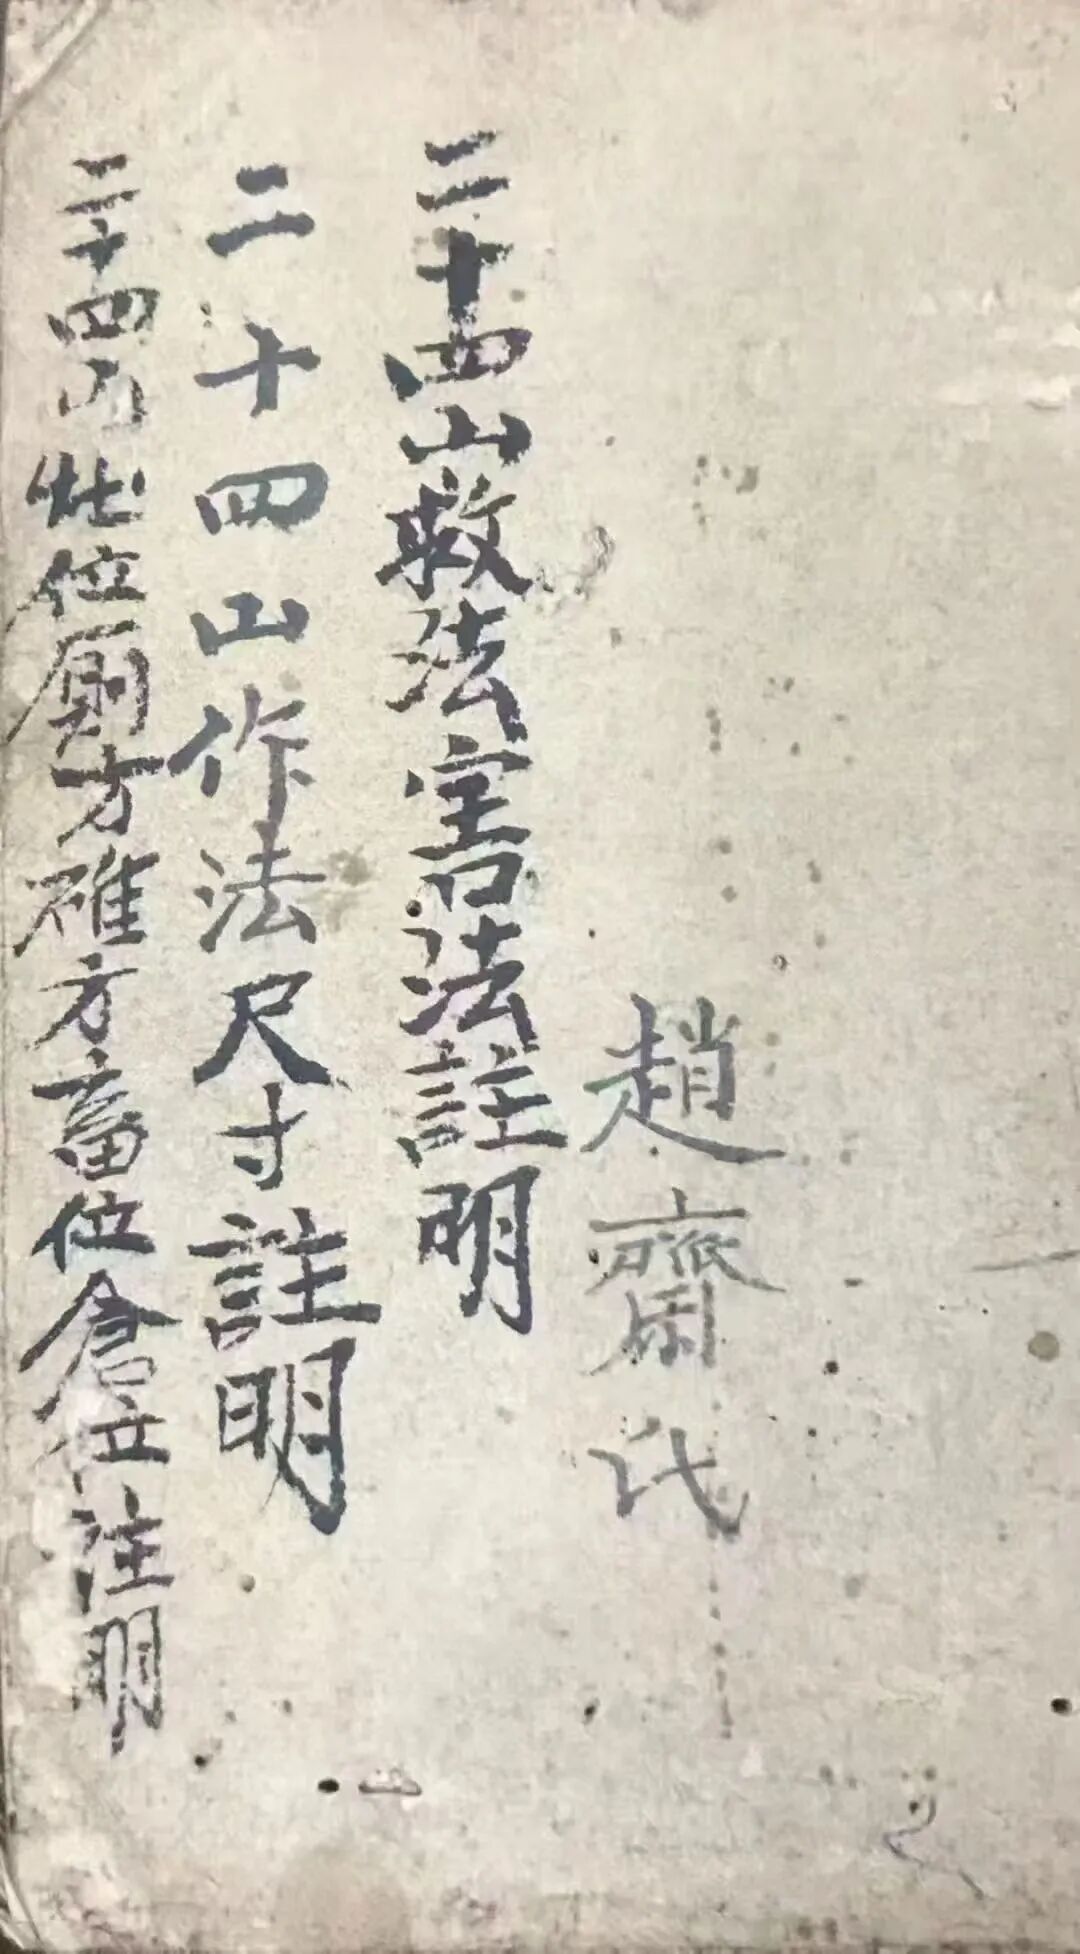 趙齋氏
二十四山救法害法註明
二十四山作法尺寸註明
二十四山灶位厠方碓方畜位倉位注明